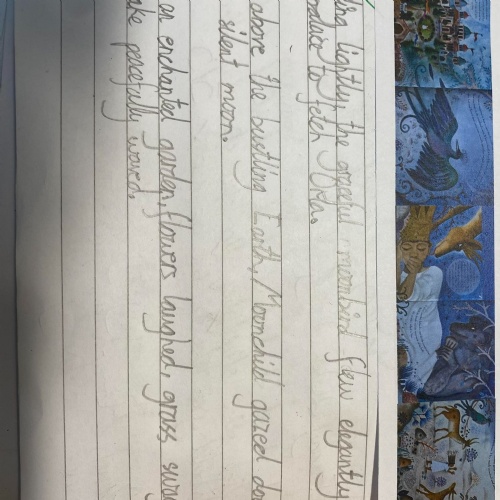 lightly, the graceful moonbird flew elegantly
to fetch
above the bustling Earth, Moonchild gazed
silent moon.
an enchanted garden, flowers laughed, grass
peacefully waved.